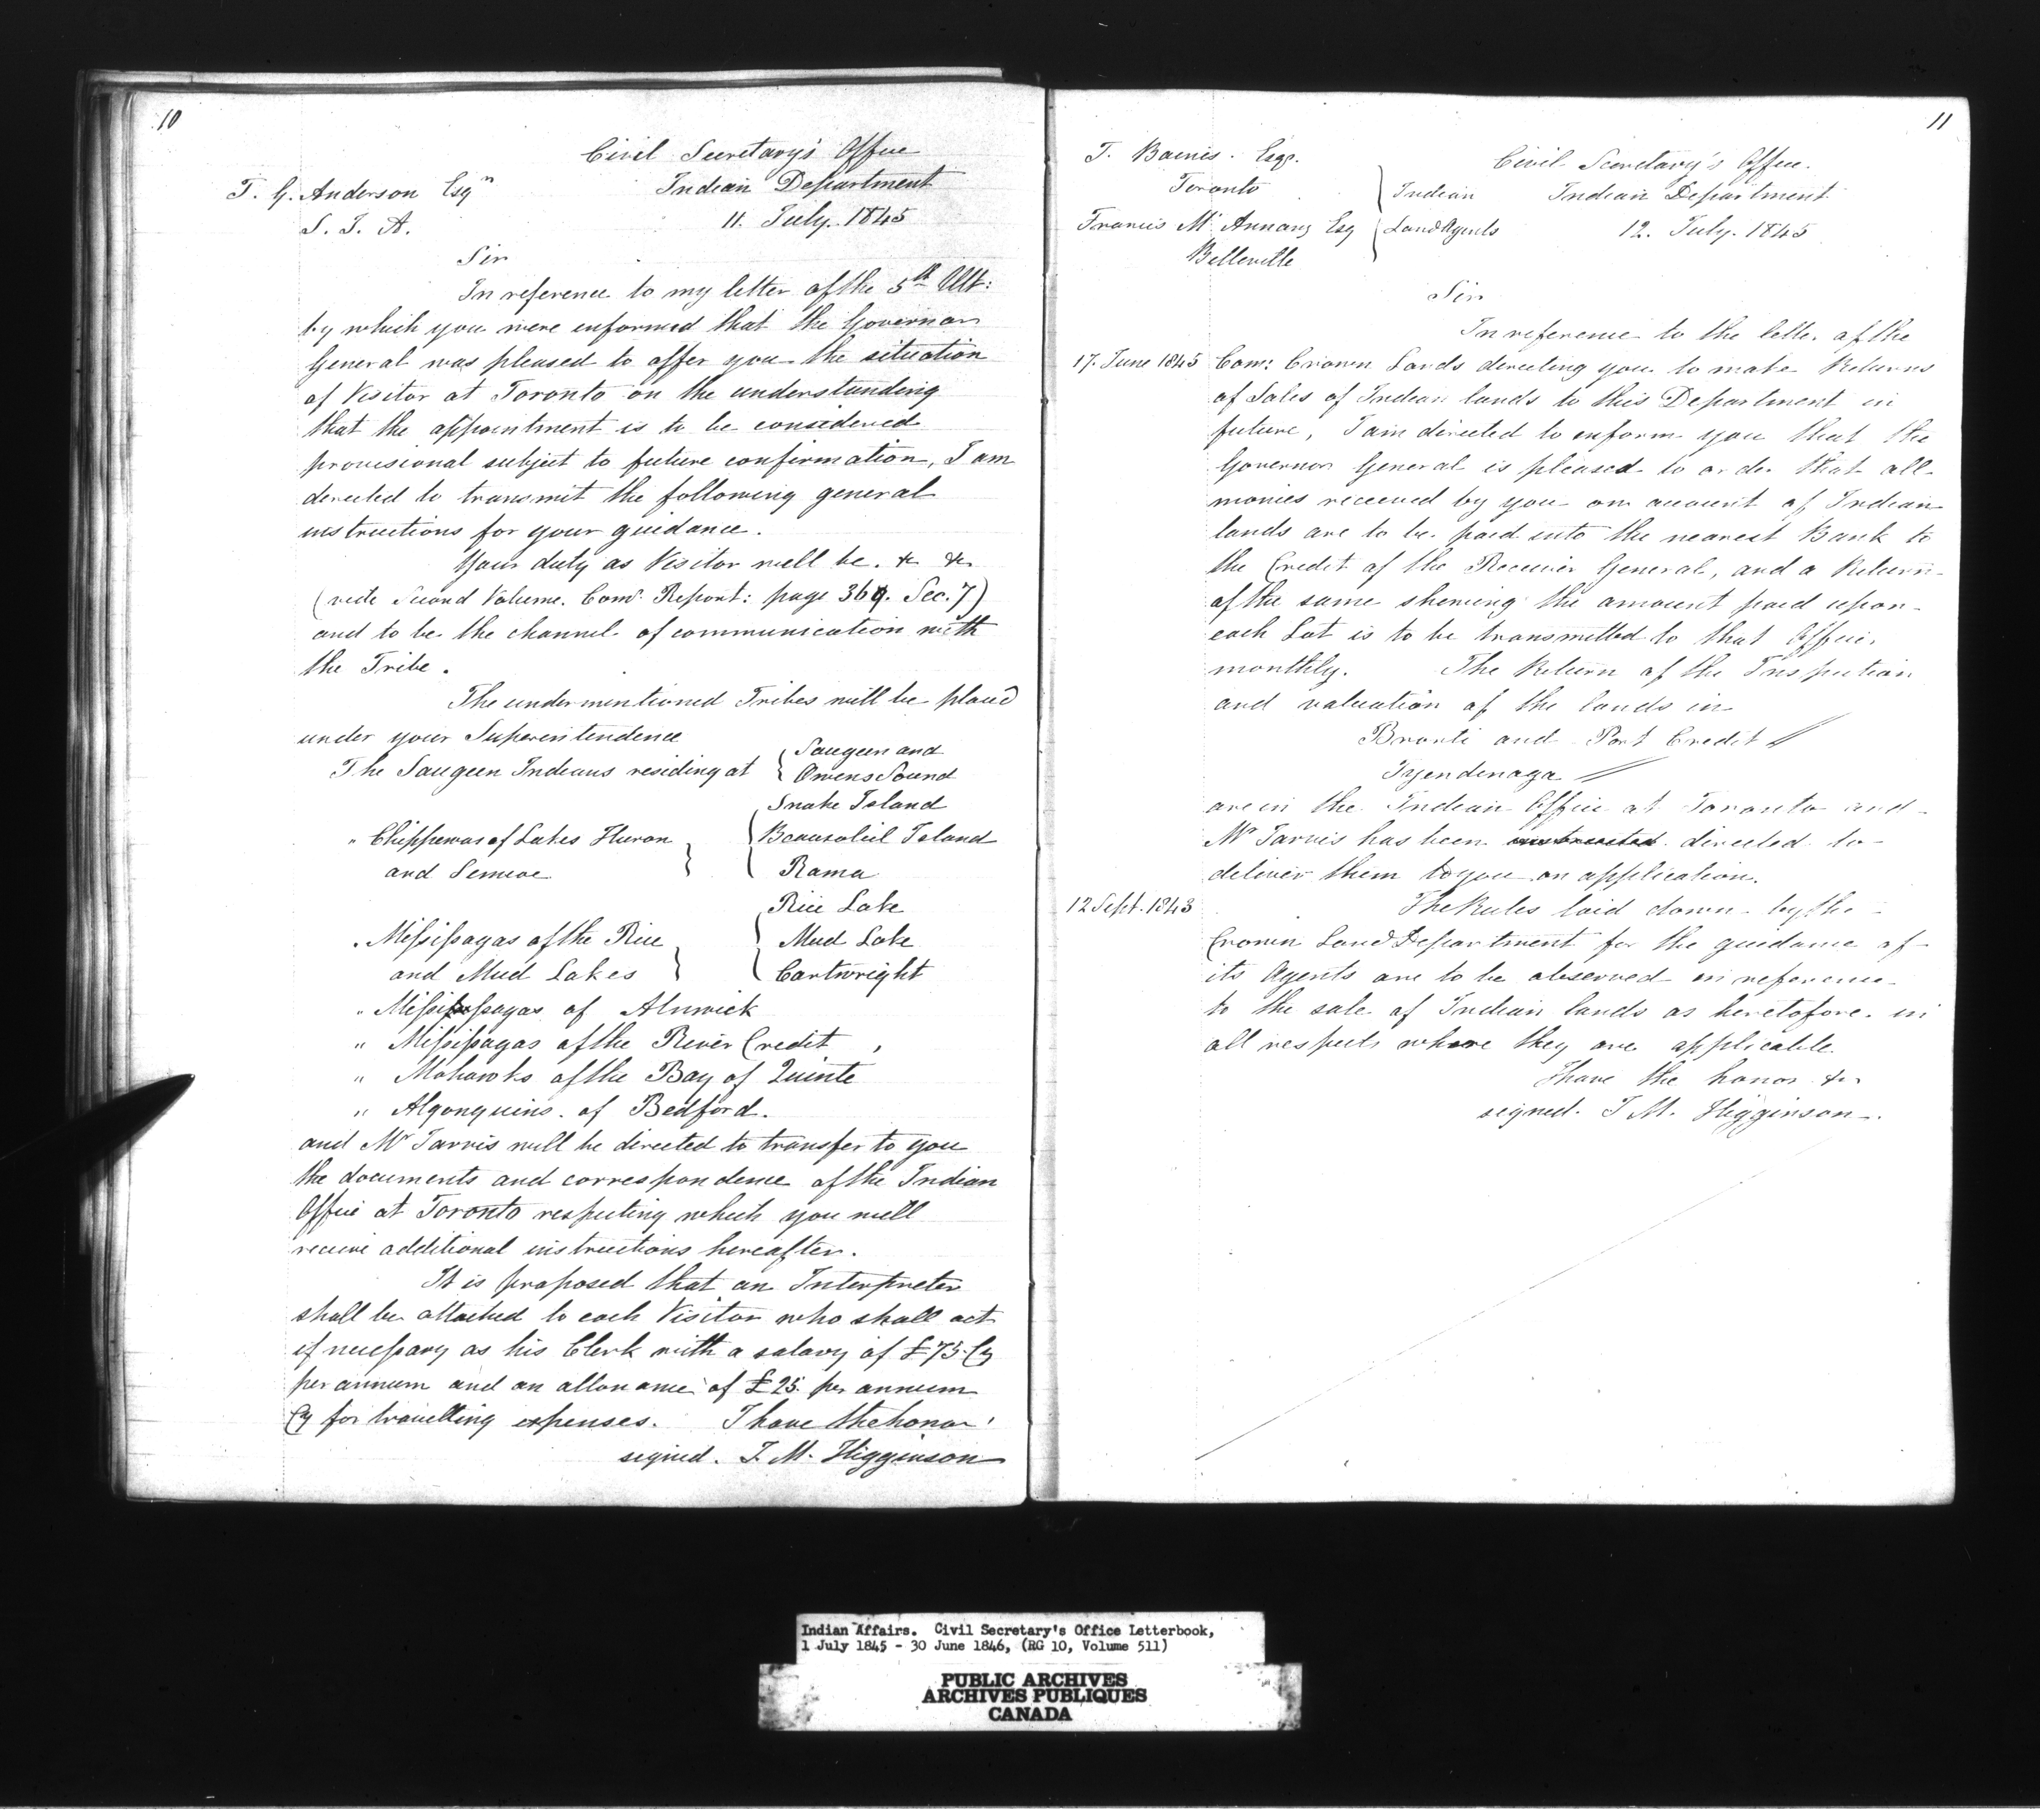 10
Civil Secretary's Office
T. G. Anderson Esqr
Indian Department
S. I. A.
11. July. 1845
Sir
In reference to my letter of the 5th Ult:
by which you were informed that the Governor
General was pleased to offer you the situation
of Visitor at Toronto on the understanding
that the appointment is to be considered
provisional subject to future confirmation, I am
directed to transmit the following general
instructions for your guidance.
Your duty as Visitor will be. &c &c
(vide Second Volume. Comrs Report: page 369. Sec. 7)
and to be the channel of communication with
the Tribe.
The undermentioned Tribes will be placed
under your Superintendence
The Saugeen Indians residing at { Saugeen and
Owens Sound
Snake Island
" Chippewas of Lakes Huron } { Beausoleil Island
and Simcoe
Rama
Rice Lake
" Missisagas of the Rice } { Mud Lake
and Mud Lakes
Cartwright
" Missisagas of Alnwick
" Missisagas of the River Credit
" Mohawks of the Bay of Quinte
" Algonquins of Bedford.
and Mr Jarvis will be directed to transfer to you
the documents and correspondence of the Indian
Office at Toronto respecting which you will
receive additional instructions hereafter.
It is proposed that an Interpreter
shall be attached to each Visitor who shall act
if necessary as his Clerk with a salary of £75 Cy
per annum and an allowance of £25 per annum
Cy for travelling expenses. I have the honor
signed. J. M. Higginson
11
T. Baines. Esqr.
Civil Secretary's Office.
Toronto } Indian
Indian Department
Francis Mc Annany Esq { Land Agents
12. July. 1845
Belleville
Sir
In reference to the letter of the
17. June 1845 Com: Crown Lands directing you to make Returns
of Sales of Indian lands to this Department in
future, I am directed to inform you that the
Governor General is pleased to order that all
monies received by you on account of Indian
lands are to be paid into the nearest Bank to
the Credit of the Receiver General, and a Return
of the same shewing the amount paid upon
each Lot is to be transmitted to that Office.
monthly. The Return of the Inspection
and valuation of the lands in
Bronti and Port Credit //
Tyendenaga //
are in the Indian Office at Toronto and
Mr Jarvis has been instructed directed to
deliver them to you on application.
12 Sept. 1843 The Rules laid down by the
Crown Land Department for the guidance of
its Agents are to be observed in reference
to the sale of Indian lands as heretofore in
all respects where they are applicable.
I have the honor &c
signed. J M. Higginson
Indian Affairs. Civil Secretary's Office Letterbook,
1 July 1845 - 30 June 1846, (RG 10, Volume 511)
PUBLIC ARCHIVES
ARCHIVES PUBLIQUES
CANADA